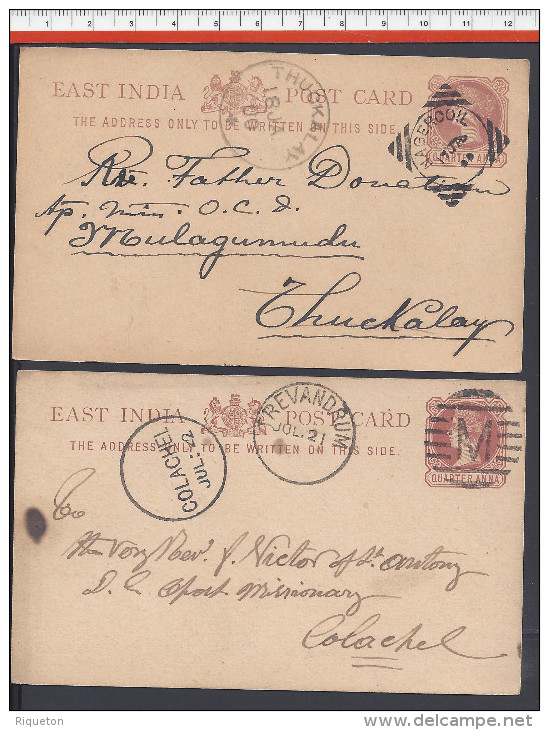 1 2 3 4 5 6 7 8 9 10 11 12
EAST INDIA POST CARD
THE ADDRESS ONLY TO BE WRITTEN ON THIS SIDE.
QUARTER ANNA
THUCKALAY
18 JU
Rev. Father Donatian
Ap. Miss. O.C.D.
Mulagumudu
Thuckalay
EAST INDIA POST CARD
THE ADDRESS ONLY TO BE WRITTEN ON THIS SIDE.
QUARTER ANNA
TREVANDRUM
JUL. 21
COLACHEL
JUL. 22
M
To
The Very Revd. J. Victor of St. Antony
D. C. Apost Missionary
Colachel
Riqueton
www.delcampe.net